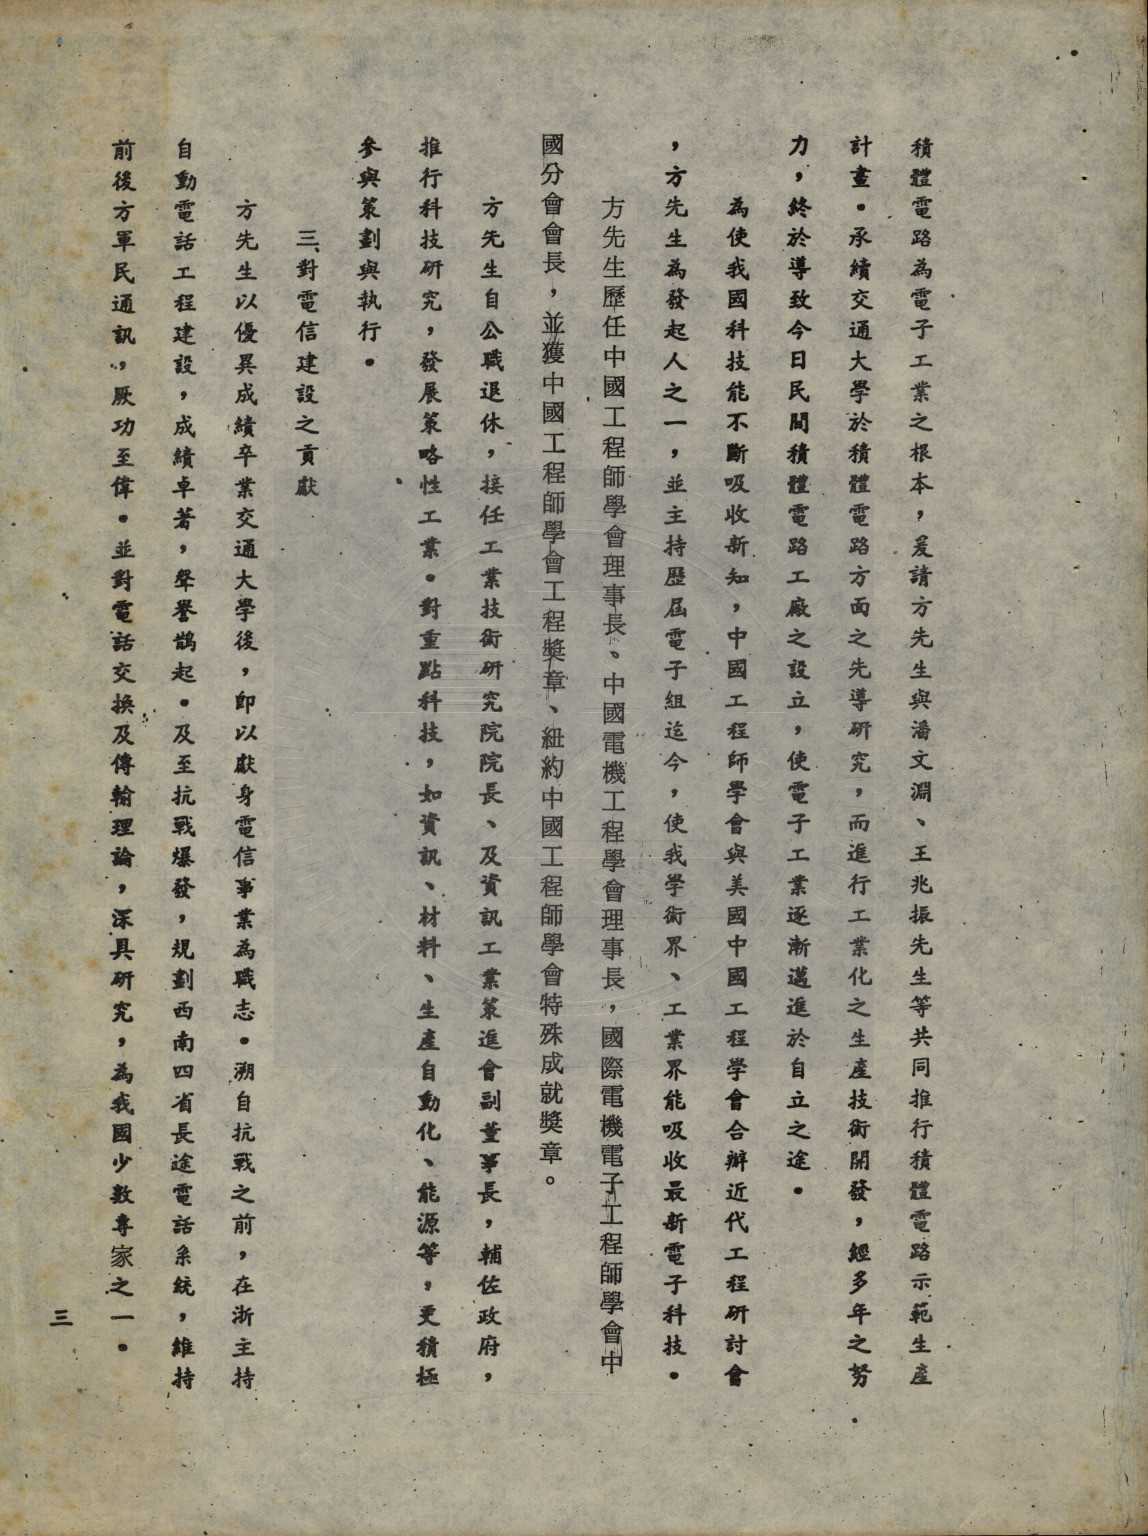 積體電路為電子工業之根本，爰請方先生與潘文淵、王兆振先生等共同推行積體電路示範生產
計畫。承續交通大學於積體電路方面之先導研究，而進行工業化之生產技術開發，經多年之努
力，終於導致今日民間積體電路工廠之設立，使電子工業逐漸邁進於自立之途。
為使我國科技能不斷吸收新知，中國工程師學會與美國中國工程學會合辦近代工程研討會
，方先生為發起人之一，並主持歷屆電子組迄今，使我學術界、工業界能吸收最新電子科技。
方先生歷任中國工程師學會理事長、中國電機工程學會理事長，國際電機電子工程師學會中
國分會會長，並獲中國工程師學會工程獎章、紐約中國工程師學會特殊成就獎章。
方先生自公職退休，接任工業技術研究院院長、及資訊工業策進會副董事長，輔佐政府，
推行科技研究，發展策略性工業。對重點科技，如資訊、材料、生產自動化、能源等，更積極
參與策劃與執行。
三、對電信建設之貢獻
方先生以優異成績卒業交通大學後，即以獻身電信事業為職志。溯自抗戰之前，在浙主持
自動電話工程建設，成績卓著，聲譽鵲起。及至抗戰爆發，規劃西南四省長途電話系統，維持
前後方軍民通訊，厥功至偉。並對電話交換及傳輸理論，深具研究，為我國少數專家之一。
三